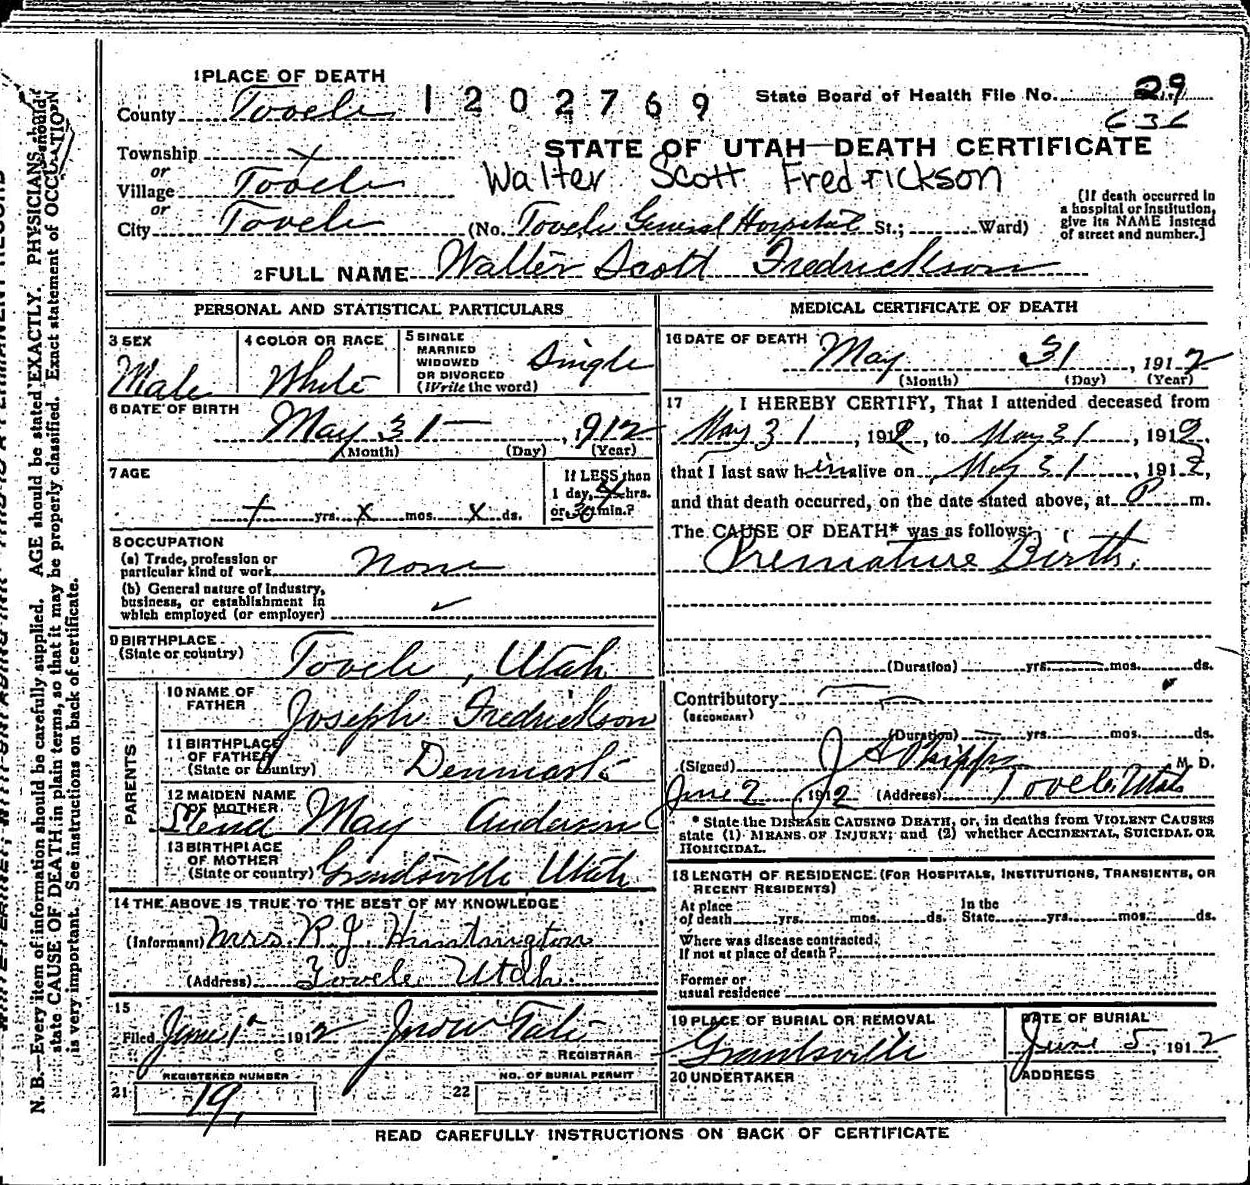 1 PLACE OF DEATH
County Tooele 1202769 State Board of Health File No. 29
Township X STATE OF UTAH—DEATH CERTIFICATE
or
Village Tooele Walter Scott Fredrickson
or
City Tooele (No. Tooele General Hospital St.; Ward)
[If death occurred in
a hospital or institution,
give its NAME instead
of street and number.]
2 FULL NAME Walter Scott Fredrickson
PERSONAL AND STATISTICAL PARTICULARS
3 SEX
Male
4 COLOR OR RACE
White
5 SINGLE
MARRIED
WIDOWED
OR DIVORCED
(Write the word)
Single
6 DATE OF BIRTH
May 31 — , 1912
(Month) (Day) (Year)
7 AGE
X yrs. X mos. X ds.
If LESS than
1 day, hrs.
or 30 min.?
8 OCCUPATION
(a) Trade, profession or
particular kind of work None
(b) General nature of industry,
business, or establishment in
which employed (or employer) ✓
9 BIRTHPLACE
(State or country) Tooele, Utah
PARENTS
10 NAME OF
FATHER Joseph Fredrickson
11 BIRTHPLACE
OF FATHER
(State or country) Denmark
12 MAIDEN NAME
OF MOTHER
May Anderson
13 BIRTHPLACE
OF MOTHER
(State or country) Grantsville Utah
14 THE ABOVE IS TRUE TO THE BEST OF MY KNOWLEDGE
(Informant) Mrs. R. J. Huntington
(Address) Tooele Utah
15
Filed June 1st 1912 Snow Tate
REGISTRAR
REGISTERED NUMBER
21 19.
NO. OF BURIAL PERMIT
22
MEDICAL CERTIFICATE OF DEATH
16 DATE OF DEATH May 31, 1912
(Month) (Day) (Year)
17 I HEREBY CERTIFY, That I attended deceased from
May 31, 1912, to May 31, 1912,
that I last saw him alive on May 31, 1912,
and that death occurred, on the date stated above, at P m.
The CAUSE OF DEATH* was as follows:
Premature Birth.
(Duration) yrs. mos. ds.
Contributory
(SECONDARY)
(Duration) yrs. mos. ds.
(Signed) J A Phipps M. D.
June 2, 1912 (Address) Tooele, Utah
* State the DISEASE CAUSING DEATH, or, in deaths from VIOLENT CAUSES
state (1) MEANS OF INJURY; and (2) whether ACCIDENTAL, SUICIDAL OR
HOMICIDAL.
18 LENGTH OF RESIDENCE (FOR HOSPITALS, INSTITUTIONS, TRANSIENTS, OR
RECENT RESIDENTS)
At place
of death yrs. mos. ds. In the
State yrs. mos. ds.
Where was disease contracted,
If not at place of death?
Former or
usual residence
19 PLACE OF BURIAL OR REMOVAL
Grantsville
DATE OF BURIAL
June 5, 1912
20 UNDERTAKER
ADDRESS
READ CAREFULLY INSTRUCTIONS ON BACK OF CERTIFICATE
N. B.—Every item of information should be carefully supplied. AGE should be stated EXACTLY. PHYSICIANS should
state CAUSE OF DEATH in plain terms, so that it may be properly classified. Exact statement of OCCUPATION
is very important. See instructions on back of certificate.